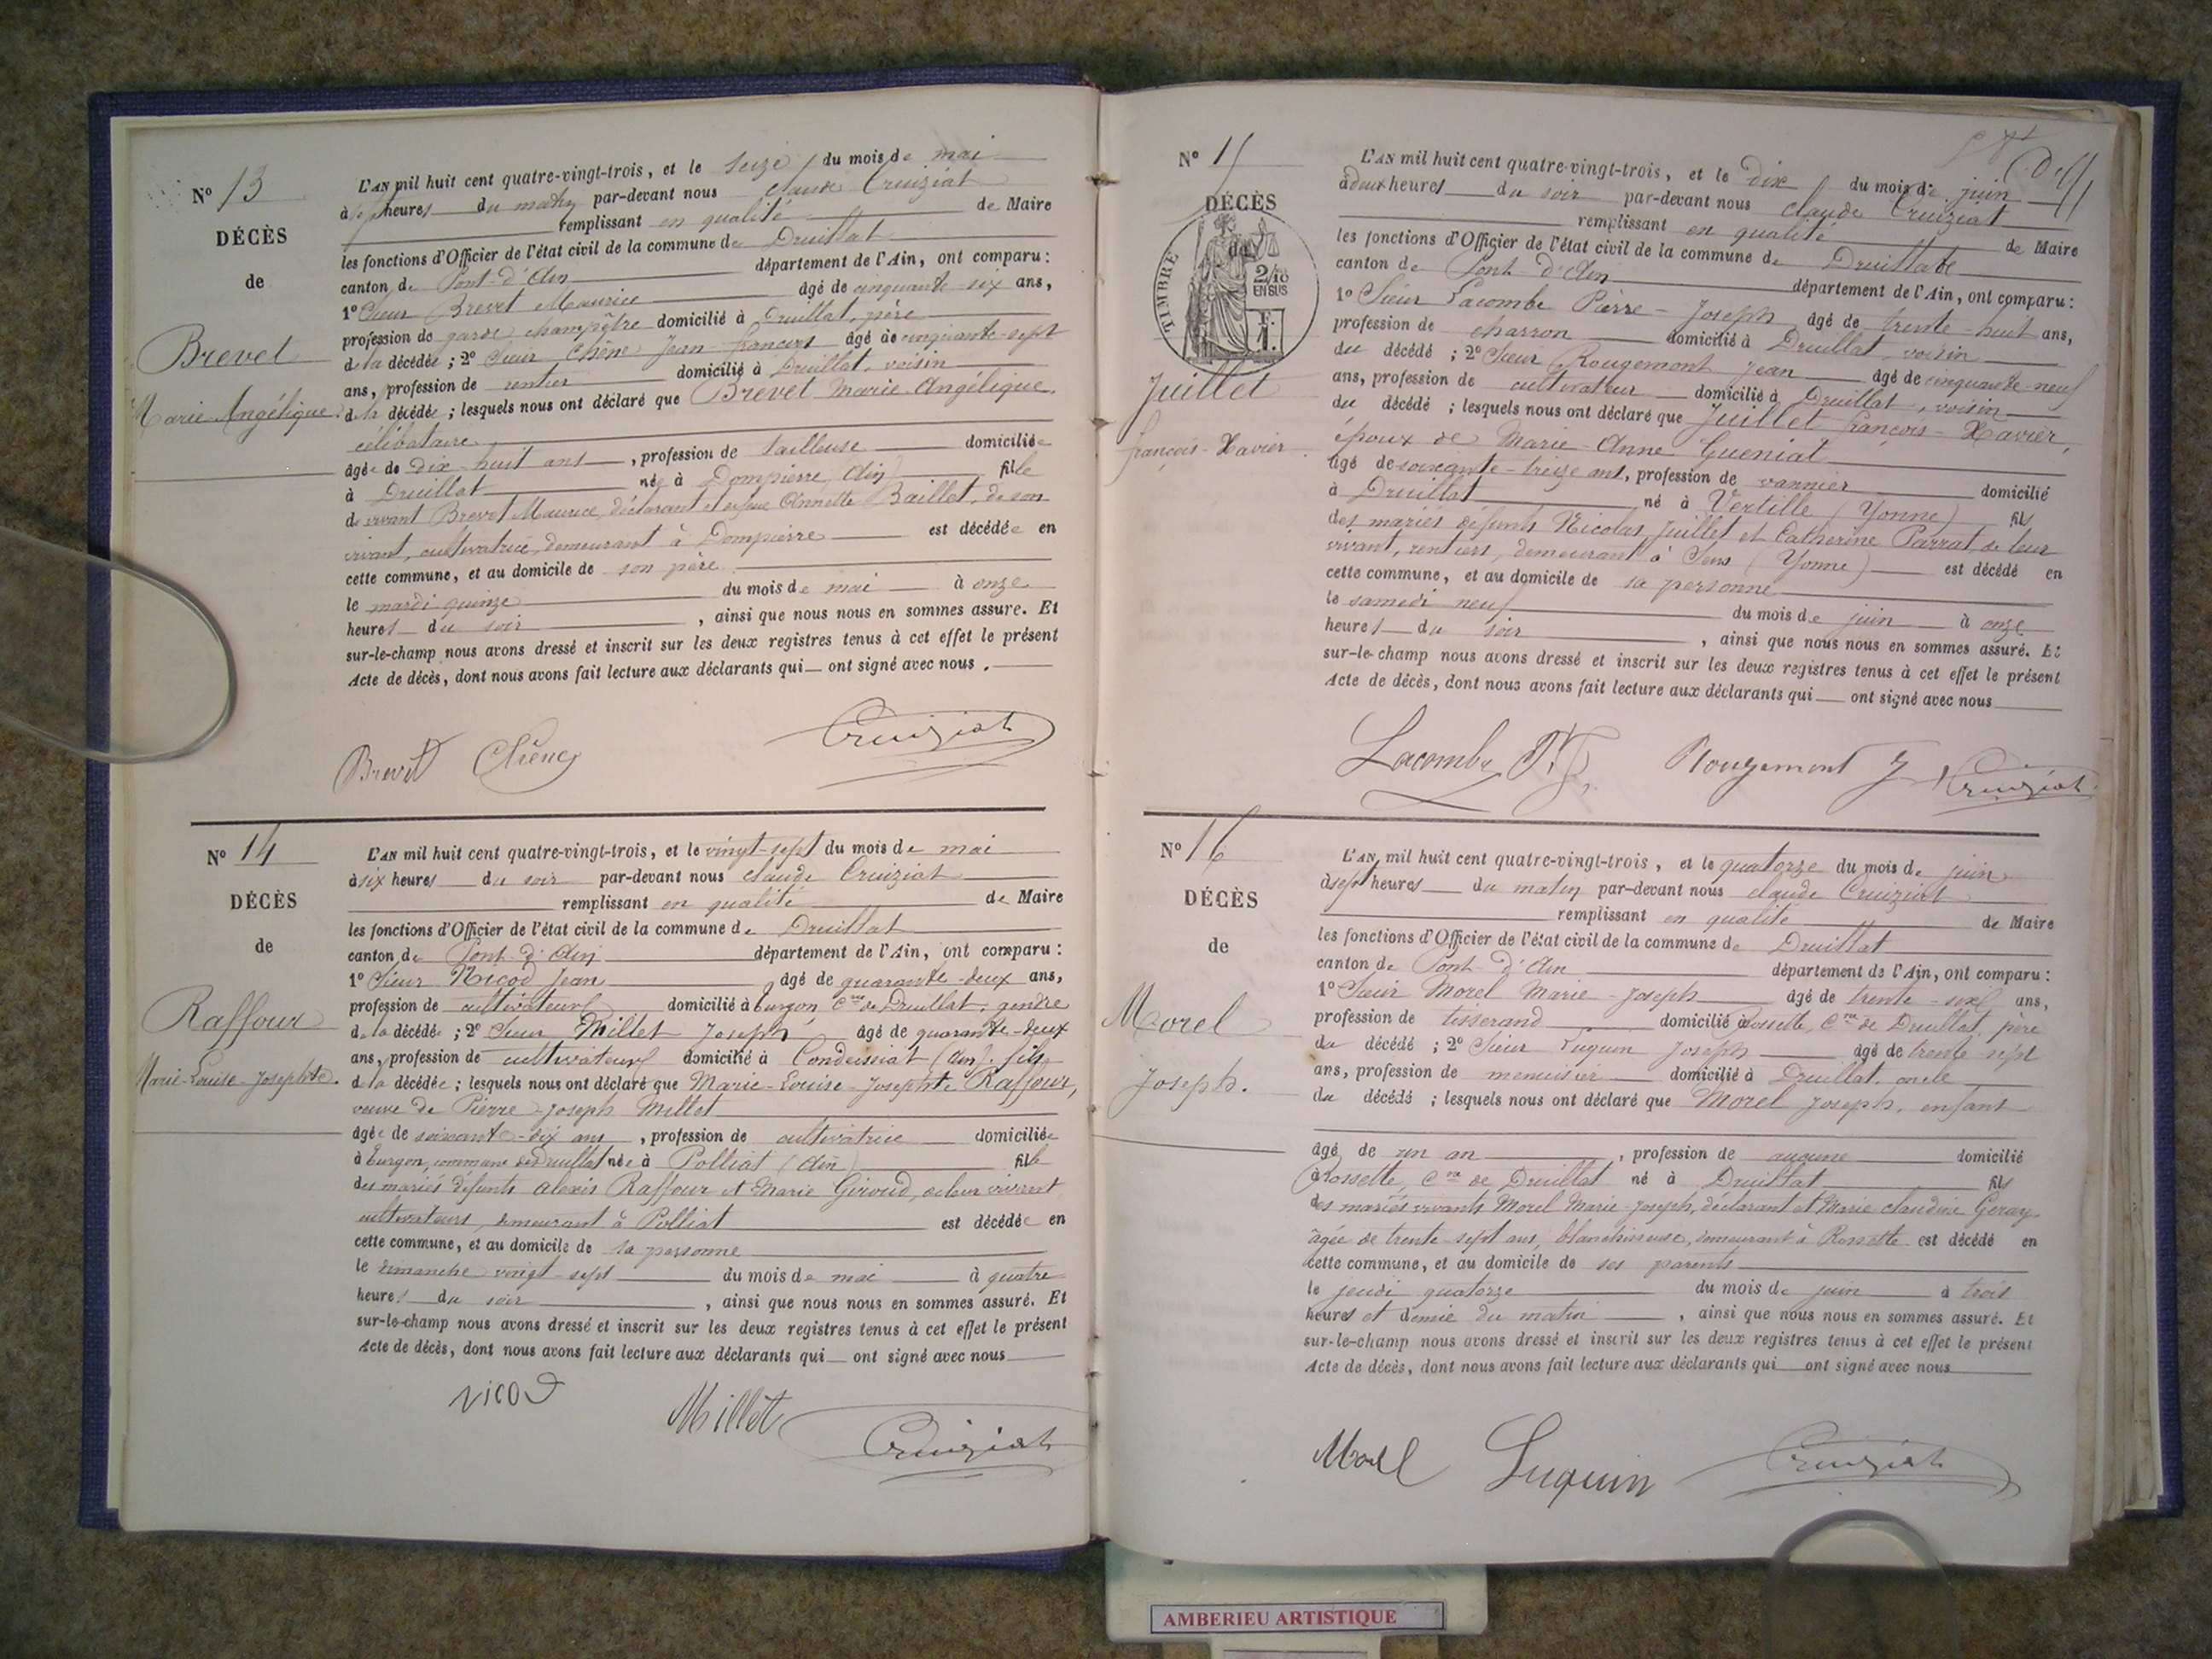 N° 13
DÉCÈS
de
Brevet
Marie Angélique
L'AN mil huit cent quatre-vingt-trois, et le seize du mois de mai
à sept heures du matin par-devant nous Claude Cruiziat
remplissant en qualité de Maire
les fonctions d'Officier de l'état civil de la commune de Druillat
canton de Pont-d'Ain département de l'Ain, ont comparu :
1° Sieur Brevet Maurice âgé de cinquante-six ans,
profession de garde champêtre domicilié à Druillat, père
de la décédée ; 2° Sieur Chêne Jean François âgé de cinquante-sept
ans, profession de rentier domicilié à Druillat, voisin
de la décédée ; lesquels nous ont déclaré que Brevet Marie Angélique,
célibataire
âgée de dix-huit ans, profession de tailleuse domiciliée
à Druillat née à Dompierre (Ain) fille
de vivant Brevet Maurice, déclarant et Annette Baillet, de son
vivant, cultivatrice, demeurant à Dompierre est décédée en
cette commune, et au domicile de son père
le mardi quinze du mois de mai à onze
heures du soir, ainsi que nous nous en sommes assuré. Et
sur-le-champ nous avons dressé et inscrit sur les deux registres tenus à cet effet le présent
Acte de décès, dont nous avons fait lecture aux déclarants qui ont signé avec nous.
Brevet Chêne Cruiziat
N° 14
DÉCÈS
de
Raffour
Marie-Louise-Josephte.
L'AN mil huit cent quatre-vingt-trois, et le vingt-sept du mois de mai
à six heures du soir par-devant nous Claude Cruiziat
remplissant en qualité de Maire
les fonctions d'Officier de l'état civil de la commune de Druillat
canton de Pont-d'Ain département de l'Ain, ont comparu :
1° Sieur Nicod Jean âgé de quarante-deux ans,
profession de cultivateur domicilié à Turgon, Cne de Druillat, gendre
de la décédée ; 2° Sieur Millet Joseph âgé de quarante-deux
ans, profession de cultivateur domicilié à Condeissiat (Ain), fils
de la décédée ; lesquels nous ont déclaré que Marie-Louise-Josephte Raffour,
veuve de Pierre-Joseph Millet
âgée de soixante-dix ans, profession de cultivatrice domiciliée
à Turgon, commune de Druillat née à Polliat (Ain) fille
des mariés défunts Alexis Raffour et Marie Giroud, de leur vivant
cultivateurs, demeurant à Polliat est décédée en
cette commune, et au domicile de sa personne
le dimanche vingt-sept du mois de mai à quatre
heures du soir, ainsi que nous nous en sommes assuré. Et
sur-le-champ nous avons dressé et inscrit sur les deux registres tenus à cet effet le présent
Acte de décès, dont nous avons fait lecture aux déclarants qui ont signé avec nous
Nicod Millet Cruiziat
N° 15
DÉCÈS
de
TIMBRE
2/10
EN SUS
F.
1.
Juillet
François-Xavier
L'AN mil huit cent quatre-vingt-trois, et le dix du mois de juin
à deux heures du soir par-devant nous Claude Cruiziat
remplissant en qualité de Maire
les fonctions d'Officier de l'état civil de la commune de Druillat
canton de Pont-d'Ain département de l'Ain, ont comparu :
1° Sieur Lacombe Pierre-Joseph âgé de trente-huit ans,
profession de charron domicilié à Druillat, voisin
du décédé ; 2° Sieur Rougemont Jean âgé de cinquante-neuf
ans, profession de cultivateur domicilié à Druillat, voisin
du décédé ; lesquels nous ont déclaré que Juillet François-Xavier,
époux de Marie-Anne Gueniat
âgé de soixante-treize ans, profession de vannier domicilié
à Druillat né à Vertille (Yonne) fils
des mariés défunts Nicolas Juillet et Catherine Parrat, de leur
vivant, rentiers, demeurant à Sens (Yonne) est décédé en
cette commune, et au domicile de sa personne
le samedi neuf du mois de juin à onze
heures du soir, ainsi que nous nous en sommes assuré. Et
sur-le-champ nous avons dressé et inscrit sur les deux registres tenus à cet effet le présent
Acte de décès, dont nous avons fait lecture aux déclarants qui ont signé avec nous
Lacombe P.J. Rougemont J Cruiziat
N° 16
DÉCÈS
de
Morel
Joseph.
L'AN mil huit cent quatre-vingt-trois, et le quatorze du mois de juin
à sept heures du matin par-devant nous Claude Cruiziat
remplissant en qualité de Maire
les fonctions d'Officier de l'état civil de la commune de Druillat
canton de Pont-d'Ain département de l'Ain, ont comparu :
1° Sieur Morel Marie-Joseph âgé de trente-six ans,
profession de tisserand domicilié à Rossette, Cne de Druillat, père
du décédé ; 2° Sieur Luquin Joseph âgé de trente-sept
ans, profession de menuisier domicilié à Druillat, oncle
du décédé ; lesquels nous ont déclaré que Morel Joseph, enfant
âgé de un an, profession de aucune domicilié
à Rossette, Cne de Druillat né à Druillat fils
des mariés vivants Morel Marie-Joseph, déclarant et Marie Claudine Geray
âgée de trente-sept ans, blanchisseuse, demeurant à Rossette est décédé en
cette commune, et au domicile de ses parents
le jeudi quatorze du mois de juin à trois
heures et demie du matin, ainsi que nous nous en sommes assuré. Et
sur-le-champ nous avons dressé et inscrit sur les deux registres tenus à cet effet le présent
Acte de décès, dont nous avons fait lecture aux déclarants qui ont signé avec nous
Morel Luquin Cruiziat
AMBERIEU ARTISTIQUE